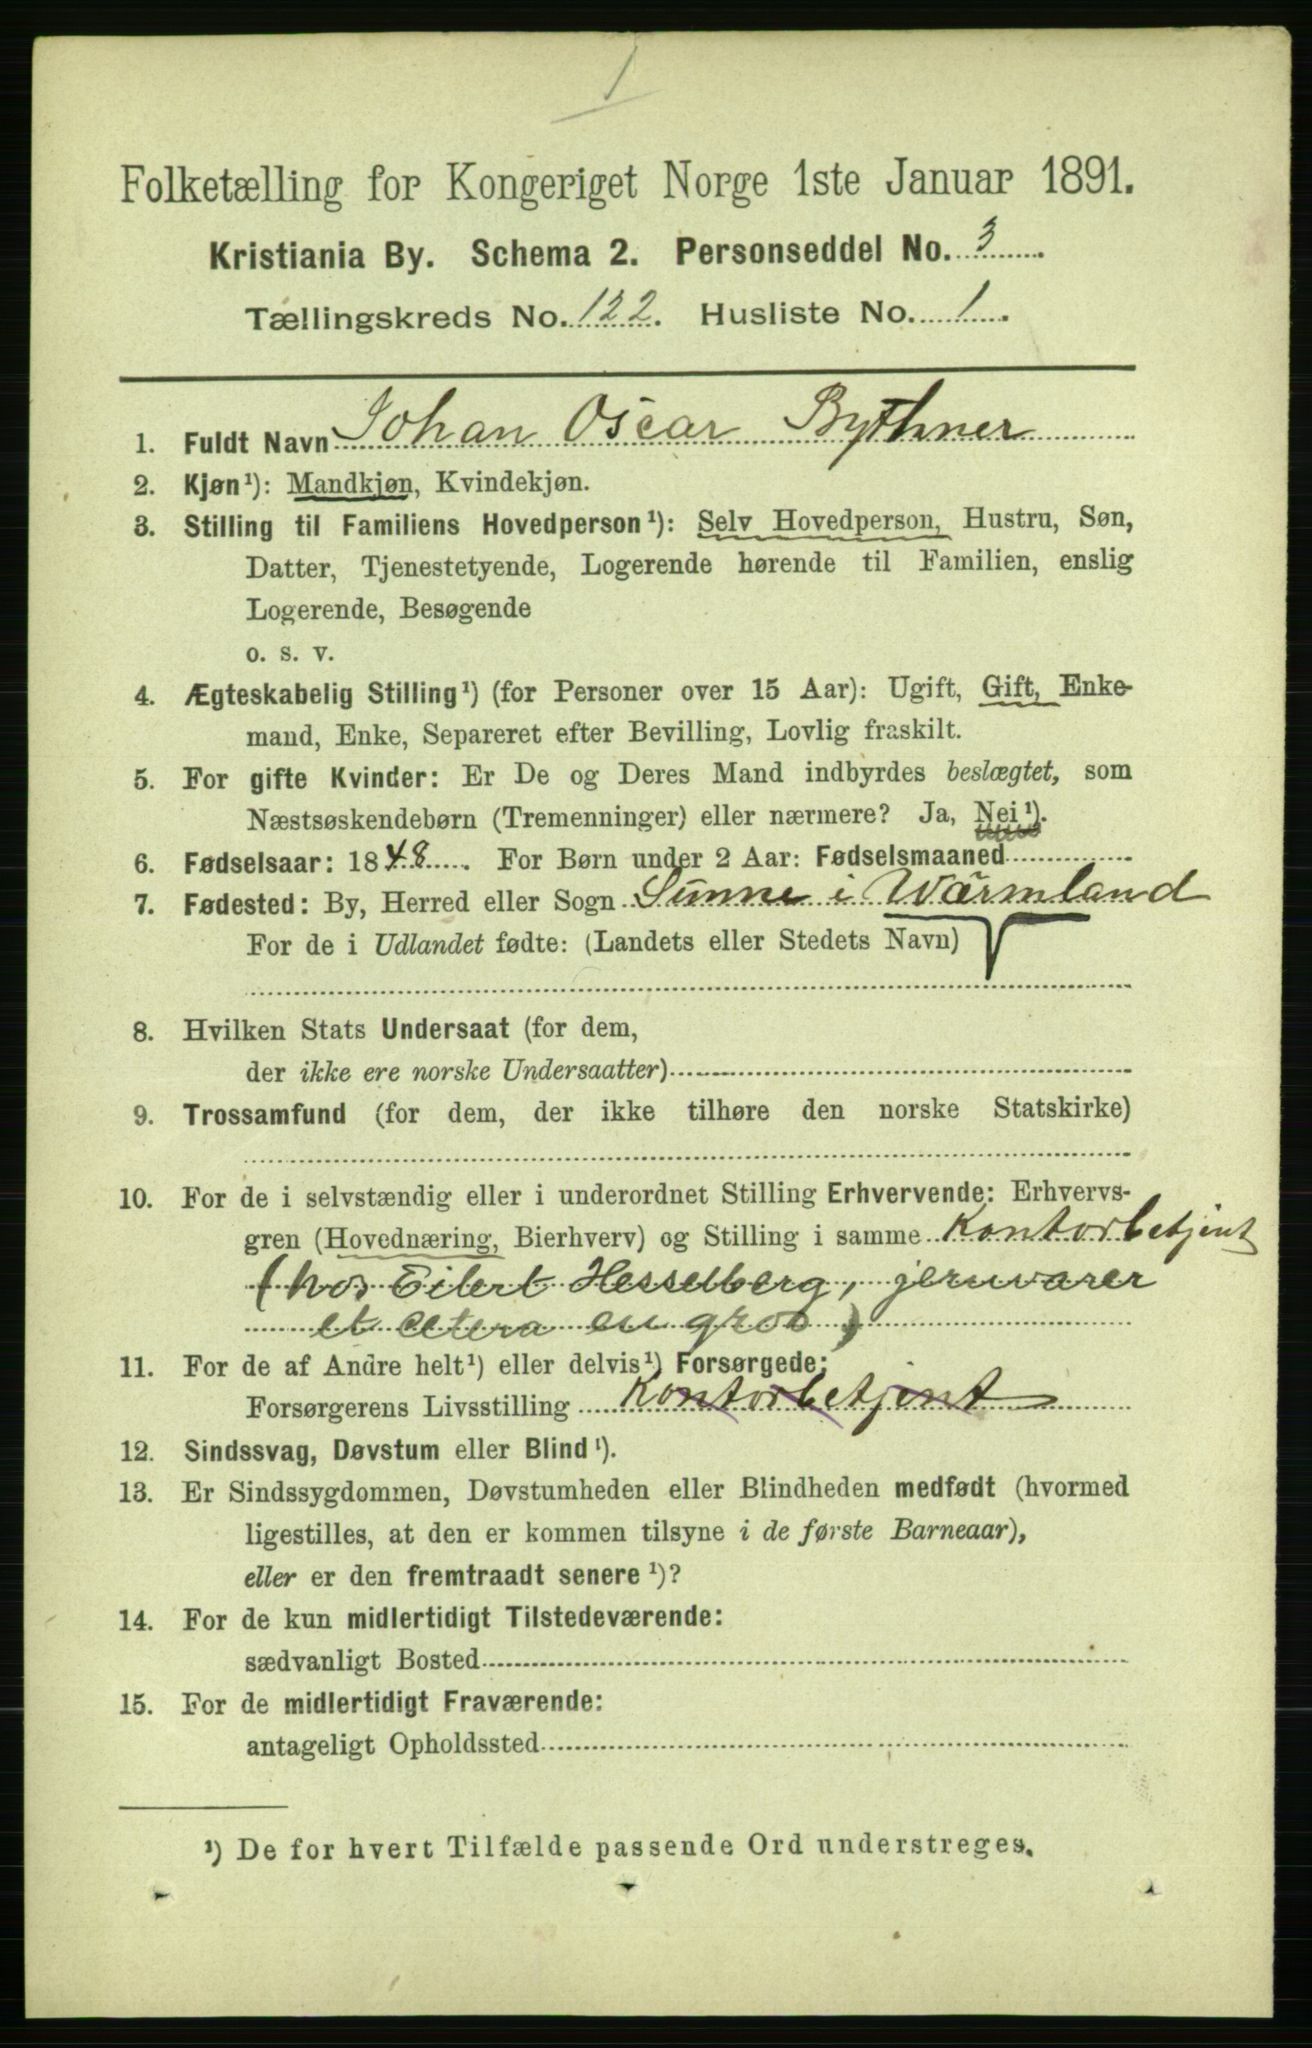 1
Folketælling for Kongeriget Norge 1ste Januar 1891.
Kristiania By. Schema 2. Personseddel No. 3
Tællingskreds No. 122. Husliste No. 1.
1. Fuldt Navn Johan Oscar Bythner
2. Kjøn¹): Mandkjøn, Kvindekjøn.
3. Stilling til Familiens Hovedperson¹): Selv Hovedperson, Hustru, Søn,
Datter, Tjenestetyende, Logerende hørende til Familien, enslig
Logerende, Besøgende
o. s. v.
4. Ægteskabelig Stilling¹) (for Personer over 15 Aar): Ugift, Gift, Enke-
mand, Enke, Separeret efter Bevilling, Lovlig fraskilt.
5. For gifte Kvinder: Er De og Deres Mand indbyrdes beslægtet, som
Næstsøskendebørn (Tremenninger) eller nærmere? Ja, Nei¹).
6. Fødselsaar: 1848. For Børn under 2 Aar: Fødselsmaaned
7. Fødested: By, Herred eller Sogn Sunne i Wärmland
For de i Udlandet fødte: (Landets eller Stedets Navn)
8. Hvilken Stats Undersaat (for dem,
der ikke ere norske Undersaatter)
9. Trossamfund (for dem, der ikke tilhøre den norske Statskirke)
10. For de i selvstændig eller i underordnet Stilling Erhvervende: Erhvervs-
gren (Hovednæring, Bierhverv) og Stilling i samme Kontorbetjent
(hos Eilert Hesselberg, jernvarer
et cetera en gros)
11. For de af Andre helt¹) eller delvis¹) Forsørgede:
Forsørgerens Livsstilling Kontorbetjent
12. Sindssvag, Døvstum eller Blind¹).
13. Er Sindssygdommen, Døvstumheden eller Blindheden medfødt (hvormed
ligestilles, at den er kommen tilsyne i de første Barneaar),
eller er den fremtraadt senere¹)?
14. For de kun midlertidigt Tilstedeværende:
sædvanligt Bosted
15. For de midlertidigt Fraværende:
antageligt Opholdssted
¹) De for hvert Tilfælde passende Ord understreges.